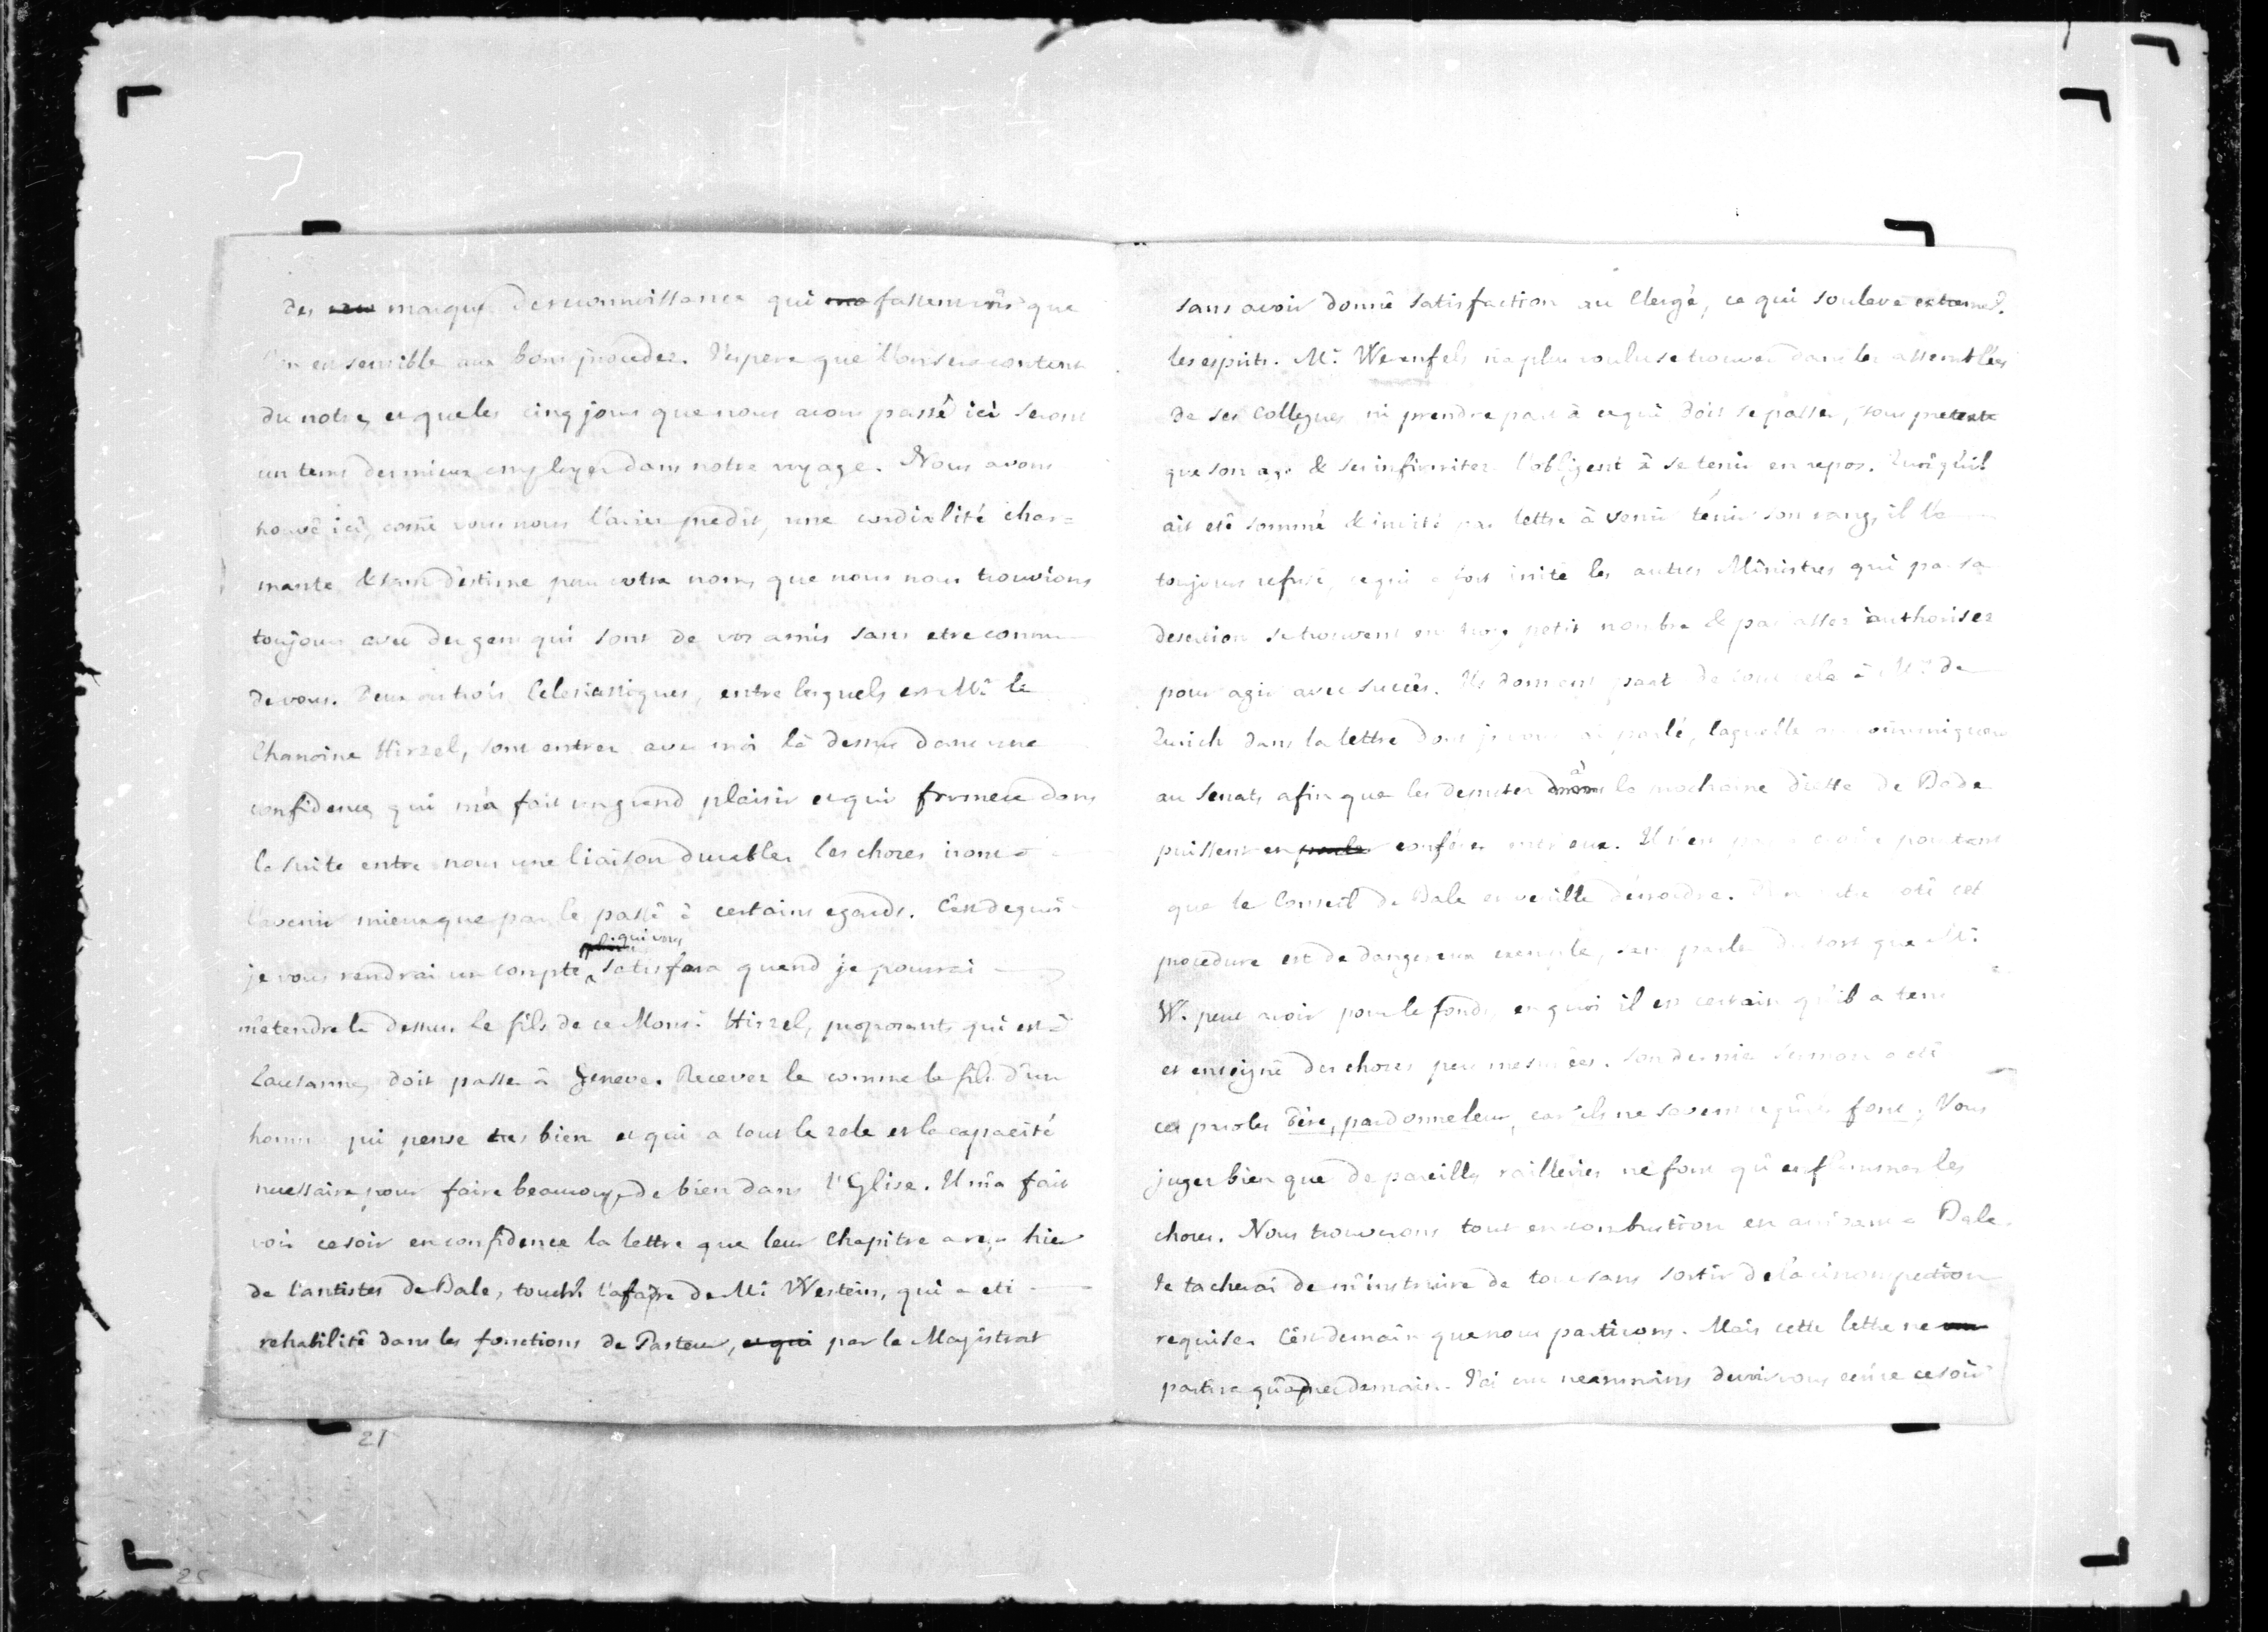 des marques de reconnoissance qui fassent voir que
l'on est sensible aux bons procedez. J'espere que l'on sera content
du notre, et que les cinq jours que nous avons passé ici seront
un tems des mieux employez dans notre voyage. Nous avons
trouvé ici, come vous nous l'aviez predit, une cordialité char=
mante & tant d'estime pour votre nom, que nous nous trouvions
toujours avec des gens qui sont de vos amis sans etre connu
de vous. Deux ou trois Eclesiastiques, entre lesquels est Mr. le
Chanoine Hirzel, sont entrez avec moi là dessus dans une
confidence qui m'a fait un grand plaisir et qui formera dans
la suite entre nous une liaison durable. Les choses iront à
l'avenir mieux que par le passé à certains egards. C'est de quoi
je vous rendrai un compte qui vous satisfera quand je pourrai
m'etendre la dessus. Le fils de ce Monsr. Hirzel, proposant, qui est à
Lausanne, doit passer à Geneve. Recevez le comme le fils d'un
homme qui pense tres bien et qui a tout le zele et la capacité
necessaire pour faire beaucoup de bien dans l'Eglise. Il m'a fait
voir ce soir en confidence la lettre que leur Chapitre a reçu hier
de l'antistes de Bale, touch. l'afaire de Mr. Westein, qui a eté
rehabilité dans les fonctions de Pasteur, et qui par le Magistrat
sans avoir donné satisfaction au Clergé, ce qui souleve extremt.
les esprits. Mr. Werenfels n'a plus voulu se trouver dans les assemblées
de ses Collegues ni prendre part à ce qui doit se passer, sous pretexte
que son age & ses infirmitez l'obligent à se tenir en repos. Quoiqu'il
ait eté sommé & invité par lettre à venir tenir son rang, il l'a
toujours refusé, ce qui a fort irrité les autres Ministres qui par sa
desertion se trouvent en trop petit nombre & pas assez authorisez
pour agir avec succès. Ils donnent part de tout cela à Mrs. de
Zurich dans la lettre dont je vous ai parlé, laquelle on communiquera
au Senat, afin que les deputez à la prochaine diette de Bade
puissent en parler conferer entr'eux. Il n'est pas à croire pourtant
que le Conseil de Bale en veuille demordre. cet
procedure est de dangereux exemple, sans parler du tort que Mr.
W. peut avoir pour le fonds, en quoi il est certain qu'il a tenu
et enseigné des choses peu mesurées. Son dernier sermon a eté
ces paroles Père, pardonne leur, car ils ne savent ce qu'ils font. Vous
jugez bien que de pareilles railleries ne font qu'enflammer les
choses. Nous trouverons tout en combustion en arrivant à Bale.
Je tacherai de m'instruire de tout sans sortir de la circonspection
requise. C'est demain que nous partirons. Mais cette lettre ne
partira qu'apres demain. J'ai cru neanmoins devoir vous ecrire ce soir
21
25